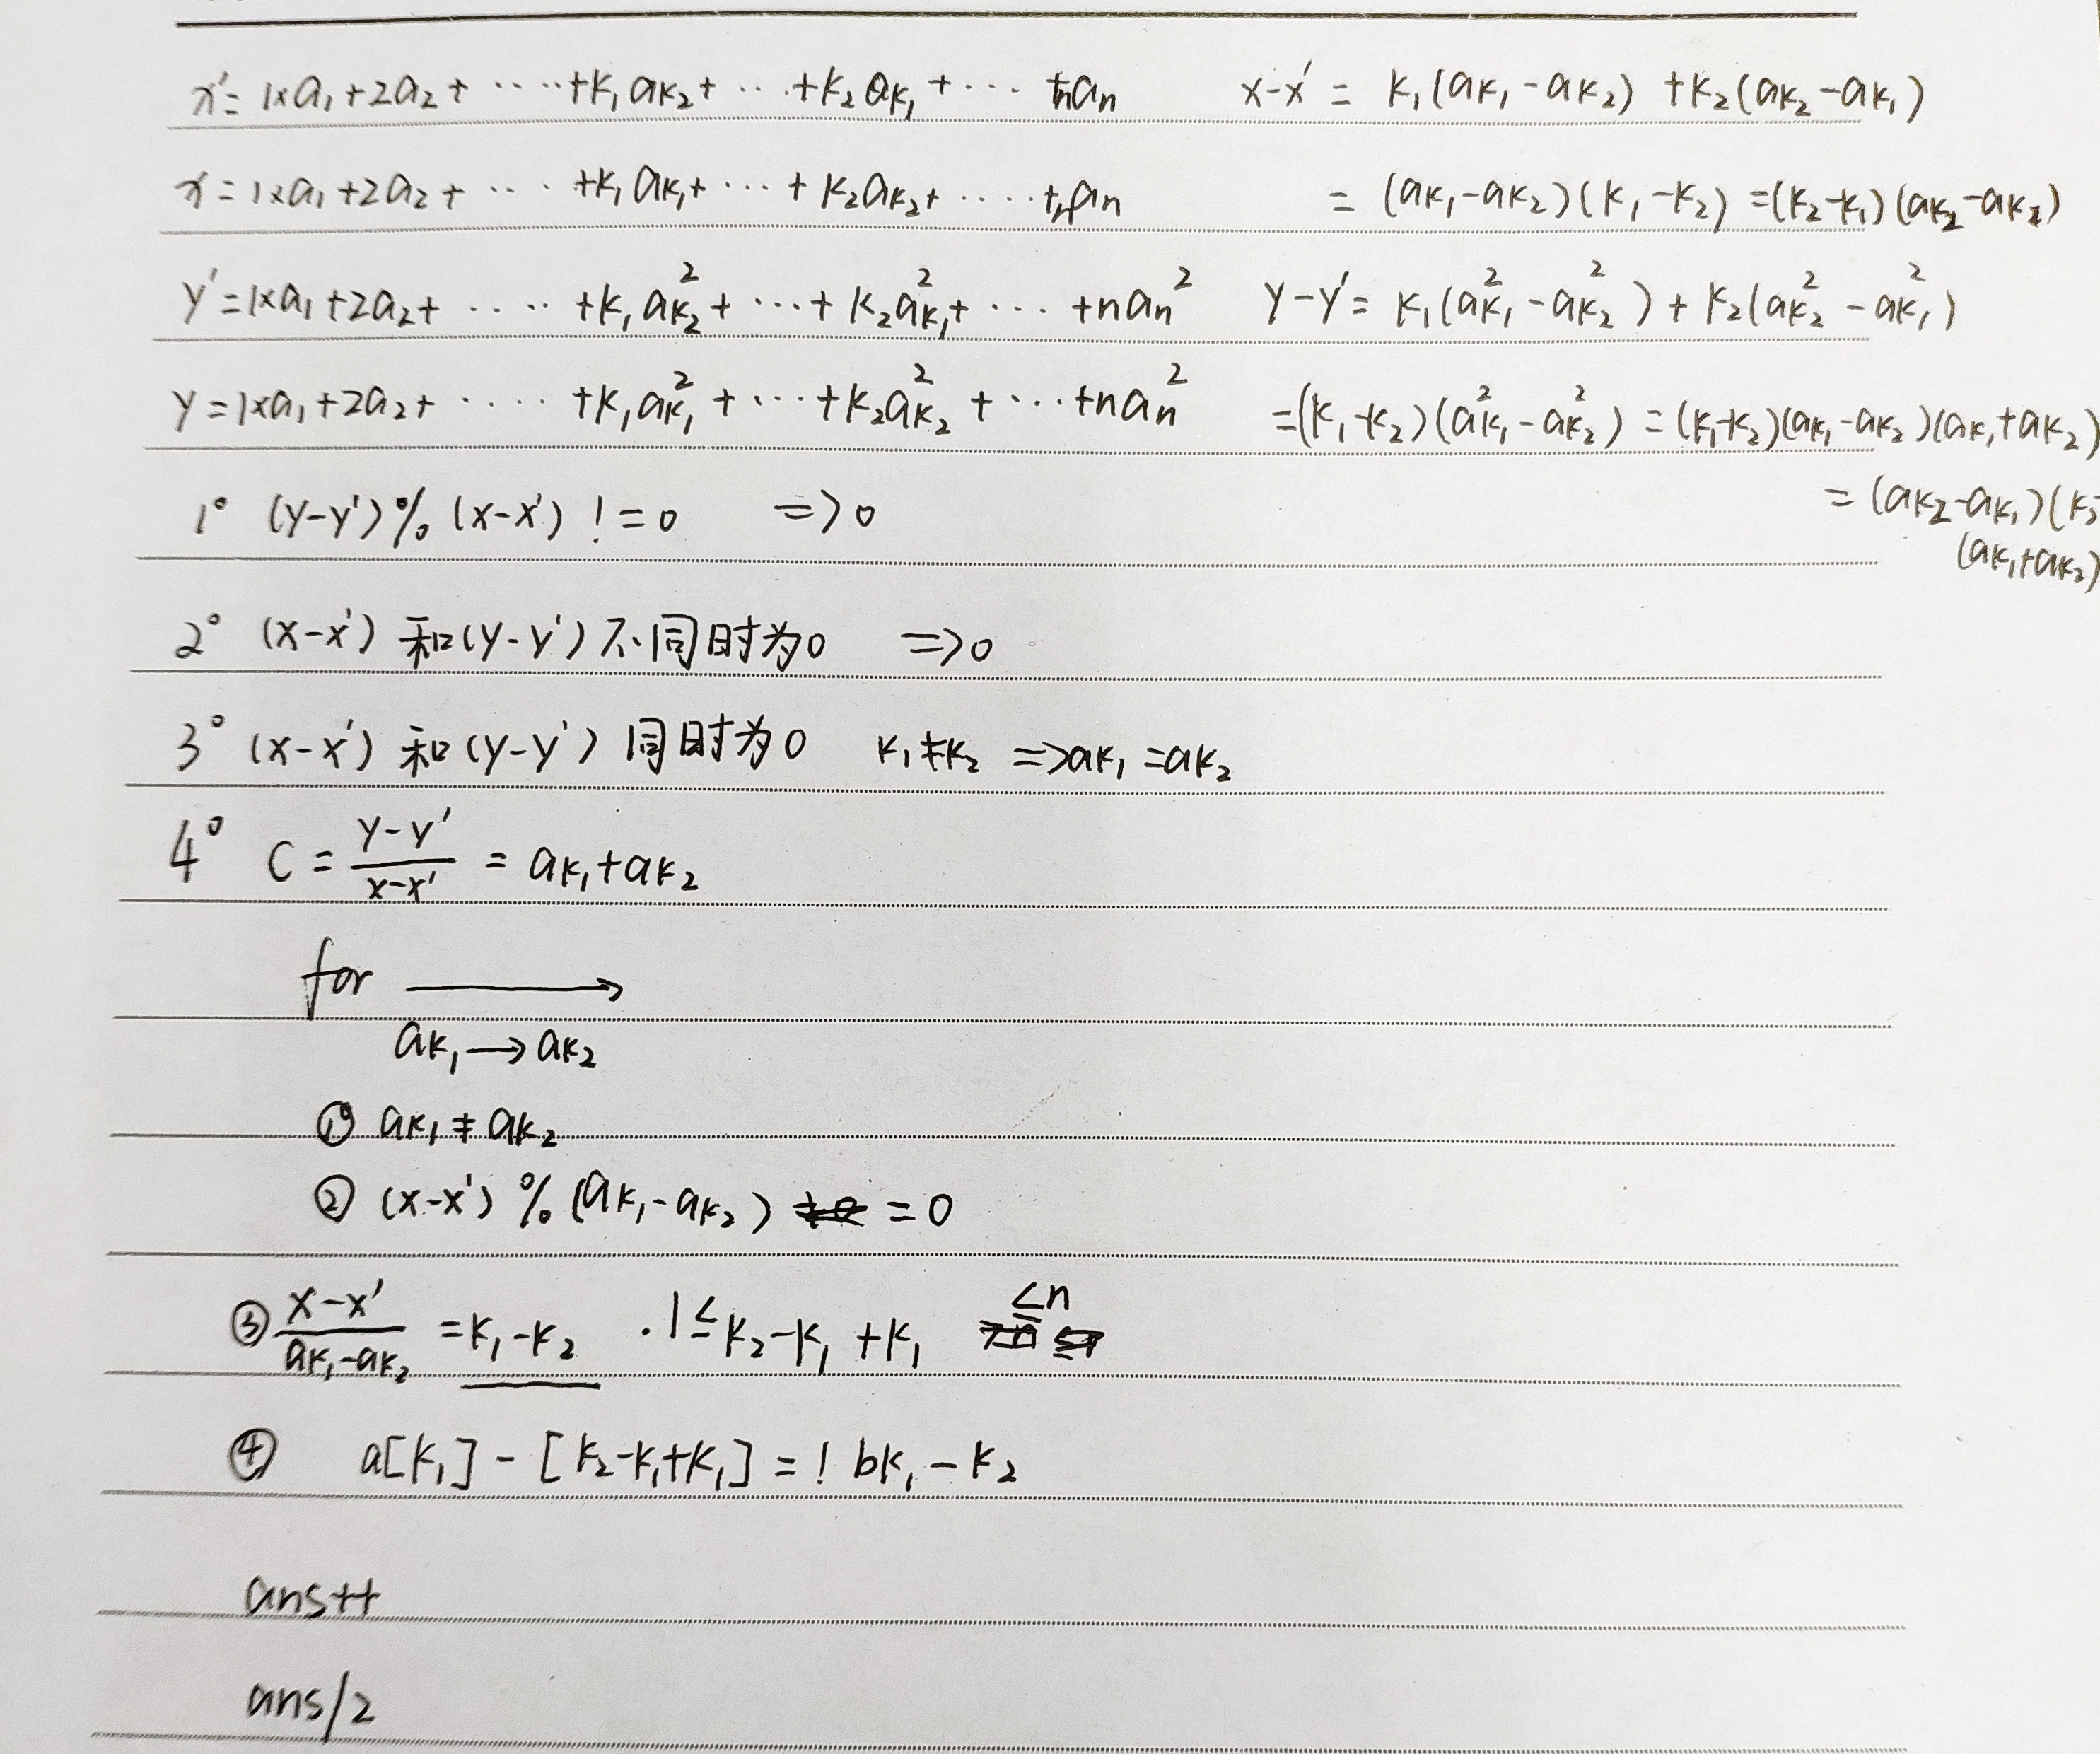 x' = 1×a₁+2a₂+ ····· +k₁ak₂+ ··· +k₂ak₁+ ··· +nan    x-x' = k₁(ak₁-ak₂) +k₂(ak₂-ak₁)
x = 1×a₁+2a₂+ ···· +k₁ak₁+ ··· + k₂ak₂+ ····· +nan    = (ak₁-ak₂)(k₁-k₂) =(k₂-k₁)(ak₂-ak₂)
y' = 1×a₁+2a₂+ ····· +k₁ak₂²+ ··· + k₂ak₁²+ ··· +nan²    y-y' = k₁(ak₁²-ak₂²) + k₂(ak₂²-ak₁²)
y = 1×a₁+2a₂+ ····· +k₁ak₁² + ··· +k₂ak₂² + ··· +nan²    =(k₁-k₂)(ak₁²-ak₂²) = (k₁-k₂)(ak₁-ak₂)(ak₁+ak₂)
= (ak₂-ak₁)(k₂
(ak₁+ak₂)
1° (y-y')%(x-x') != 0 => 0
2° (x-x') 和(y-y')不同时为0 => 0
3° (x-x') 和(y-y') 同时为0 k₁≠k₂ => ak₁=ak₂
4° C = (y-y')/(x-x') = ak₁+ak₂
for ⟶
ak₁ → ak₂
① ak₁ ≠ ak₂
② (x-x') % (ak₁-ak₂) = 0
③ (x-x')/(ak₁-ak₂) = k₁-k₂ . 1≤k₂-k₁+k₁ ≤n
④ a[k₁] - [k₂-k₁+k₁] = ! bk₁-k₂
ans++
ans/2